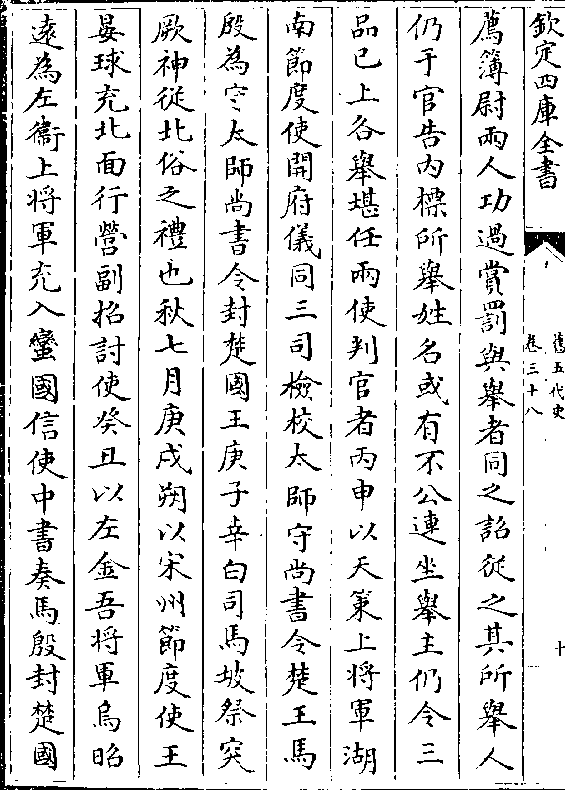 欽定四庫全書
舊五代史
卷三十八
十
薦簿尉兩人功過賞罰與舉者同之詔從之其所舉人
仍于官告内標所舉姓名或有不公連坐舉主仍令三
品已上各舉堪任兩使判官者丙申以天策上將軍湖
南節度使開府儀同三司檢校太師守尚書令楚王馬
殷為守太師尚書令封楚國王庚子幸白司馬坡祭突
厥神從北俗之禮也秋七月庚戌朔以宋州節度使王
晏球充北面行營副招討使癸丑以左金吾將軍烏昭
遠為左衞上將軍充入蠻國信使中書奏馬殷封楚國